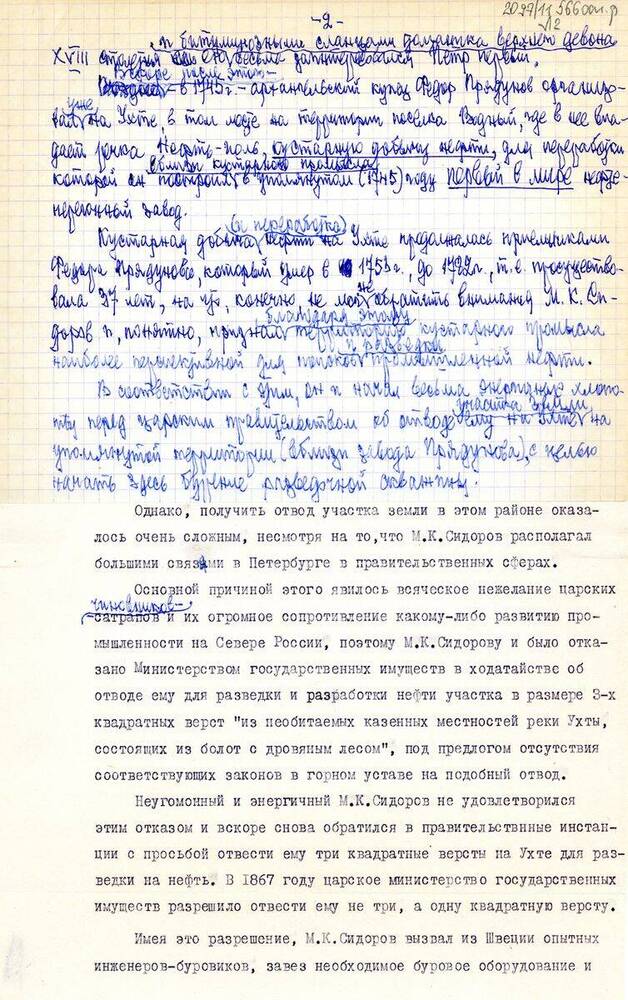 -2-
2099/11 566оп.р
12
и битуминозными сланцами доманика верхнего девона
XVIII столетия весьма заинтересовался Петр первый.
Вскоре после этого-
в 1745г.- архангельский купец Федор Прядунов организо-
уже
вал на Ухте, в том месте на территории поселка Водный, где в нее впа-
дает речка Нефть-иоль, кустарную добычу нефти, для переработки
вблизи кустарного промысла
которой он построил в упомянутом (1745) году первый в мире нефте-
перегонный завод.
(и переработка)
Кустарная добыча нефти на Ухте продолжалась приемниками
Федора Прядунова, который умер в 1753г., до 1782г., т.е. просущество-
вала 37 лет, на что, конечно, не мог не обратить внимания М.К.Си-
доров и, понятно, признал территорию кустарного промысла
благодаря этому
и разведки
наиболее перспективной для поисков промышленной нефти.
В соответствии с этим, он и начал весьма энергично хлопо-
участка земли
тву перед царским правительством об отводе ему на Ухте на
упомянутой территории (вблизи завода Прядунова), с целью
начать здесь бурение разведочной скважины.
Однако, получить отвод участка земли в этом районе оказа-
лось очень сложным, несмотря на то,что М.К.Сидоров располагал
большими связями в Петербурге в правительственных сферах.
Основной причиной этого явилось всяческое нежелание царских
чиновников-
сатрапов и их огромное сопротивление какому-либо развитию про-
мышленности на Севере России, поэтому М.К.Сидорову и было отка-
зано Министерством государственных имуществ в ходатайстве об
отводе ему для разведки и разработки нефти участка в размере 3-х
квадратных верст "из необитаемых казенных местностей реки Ухты,
состоящих из болот с дровяным лесом", под предлогом отсутствия
соответствующих законов в горном уставе на подобный отвод.
Неугомонный и энергичный М.К.Сидоров не удовлетворился
этим отказом и вскоре снова обратился в правительствнные инстан-
ции с просьбой отвести ему три квадратные версты на Ухте для раз-
ведки на нефть. В 1867 году царское министерство государственных
имуществ разрешило отвести ему не три, а одну квадратную версту.
Имея это разрешение, М.К.Сидоров вызвал из Швеции опытных
инженеров-буровиков, завез необходимое буровое оборудование и